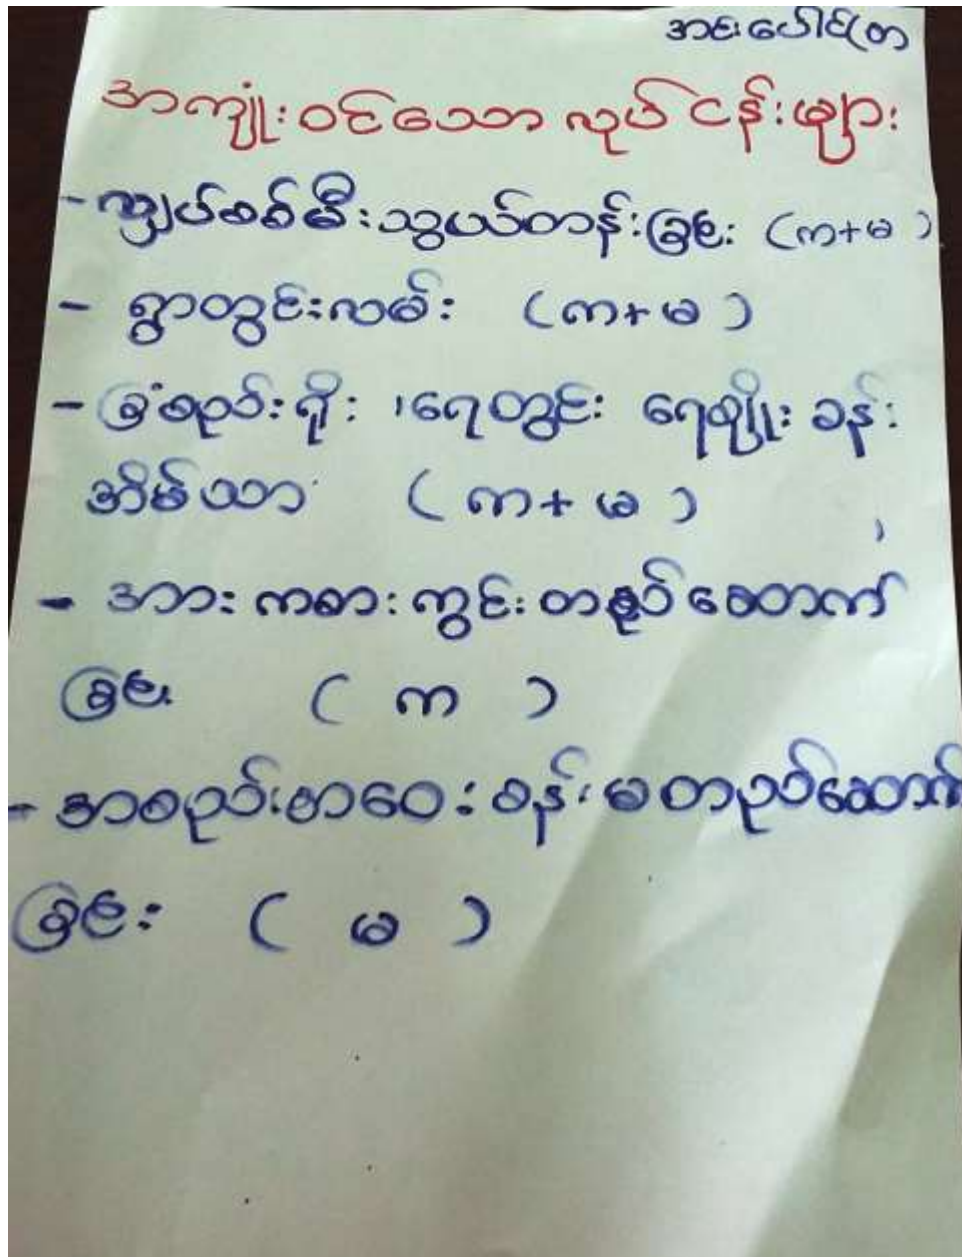 အင်းပေါင်(တ
အကျုံးဝင်သော လုပ်ငန်းများ
- လျှပ်စစ်မီးသွယ်တန်းခြင်း (က+မ)
- ရွာတွင်းလမ်း (က+မ)
- ခြံစည်းရိုး ၊ရေတွင်း ရေချိုးခန်း
အိမ်သာ (က+မ)
- အားကစားကွင်းတည်ဆောက်
ခြင်း (က)
- အစည်းအဝေးခန်းမတည်ဆောက်
ခြင်း (မ)